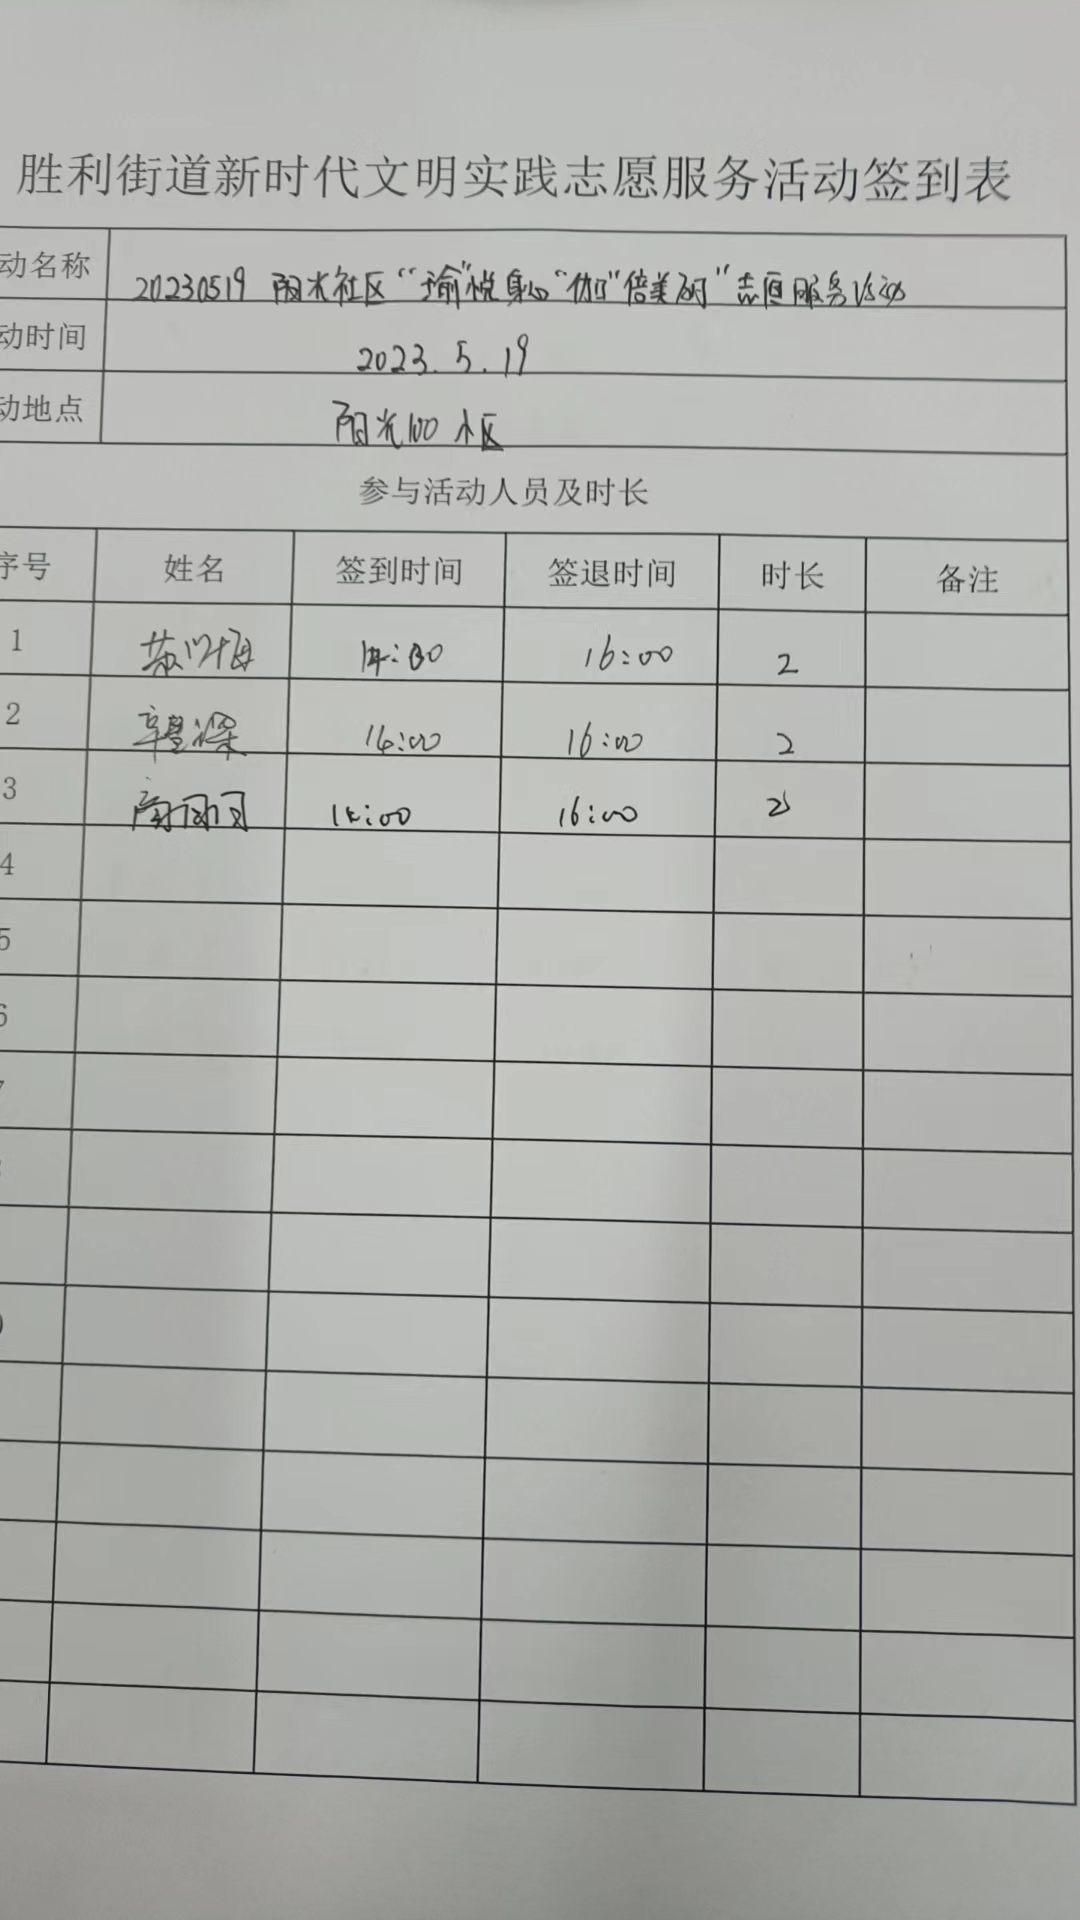 胜利街道新时代文明实践志愿服务活动签到表
动名称 20230519 阳光社区“瑜”悦身心“伽”倍美丽”志愿服务活动
动时间 2023.5.19
动地点 阳光100小区
参与活动人员及时长
序号 姓名 签到时间 签退时间 时长 备注
1 16:00 2
2 14:00 16:00 2
3 14:00 16:00 2
4
5
6
7